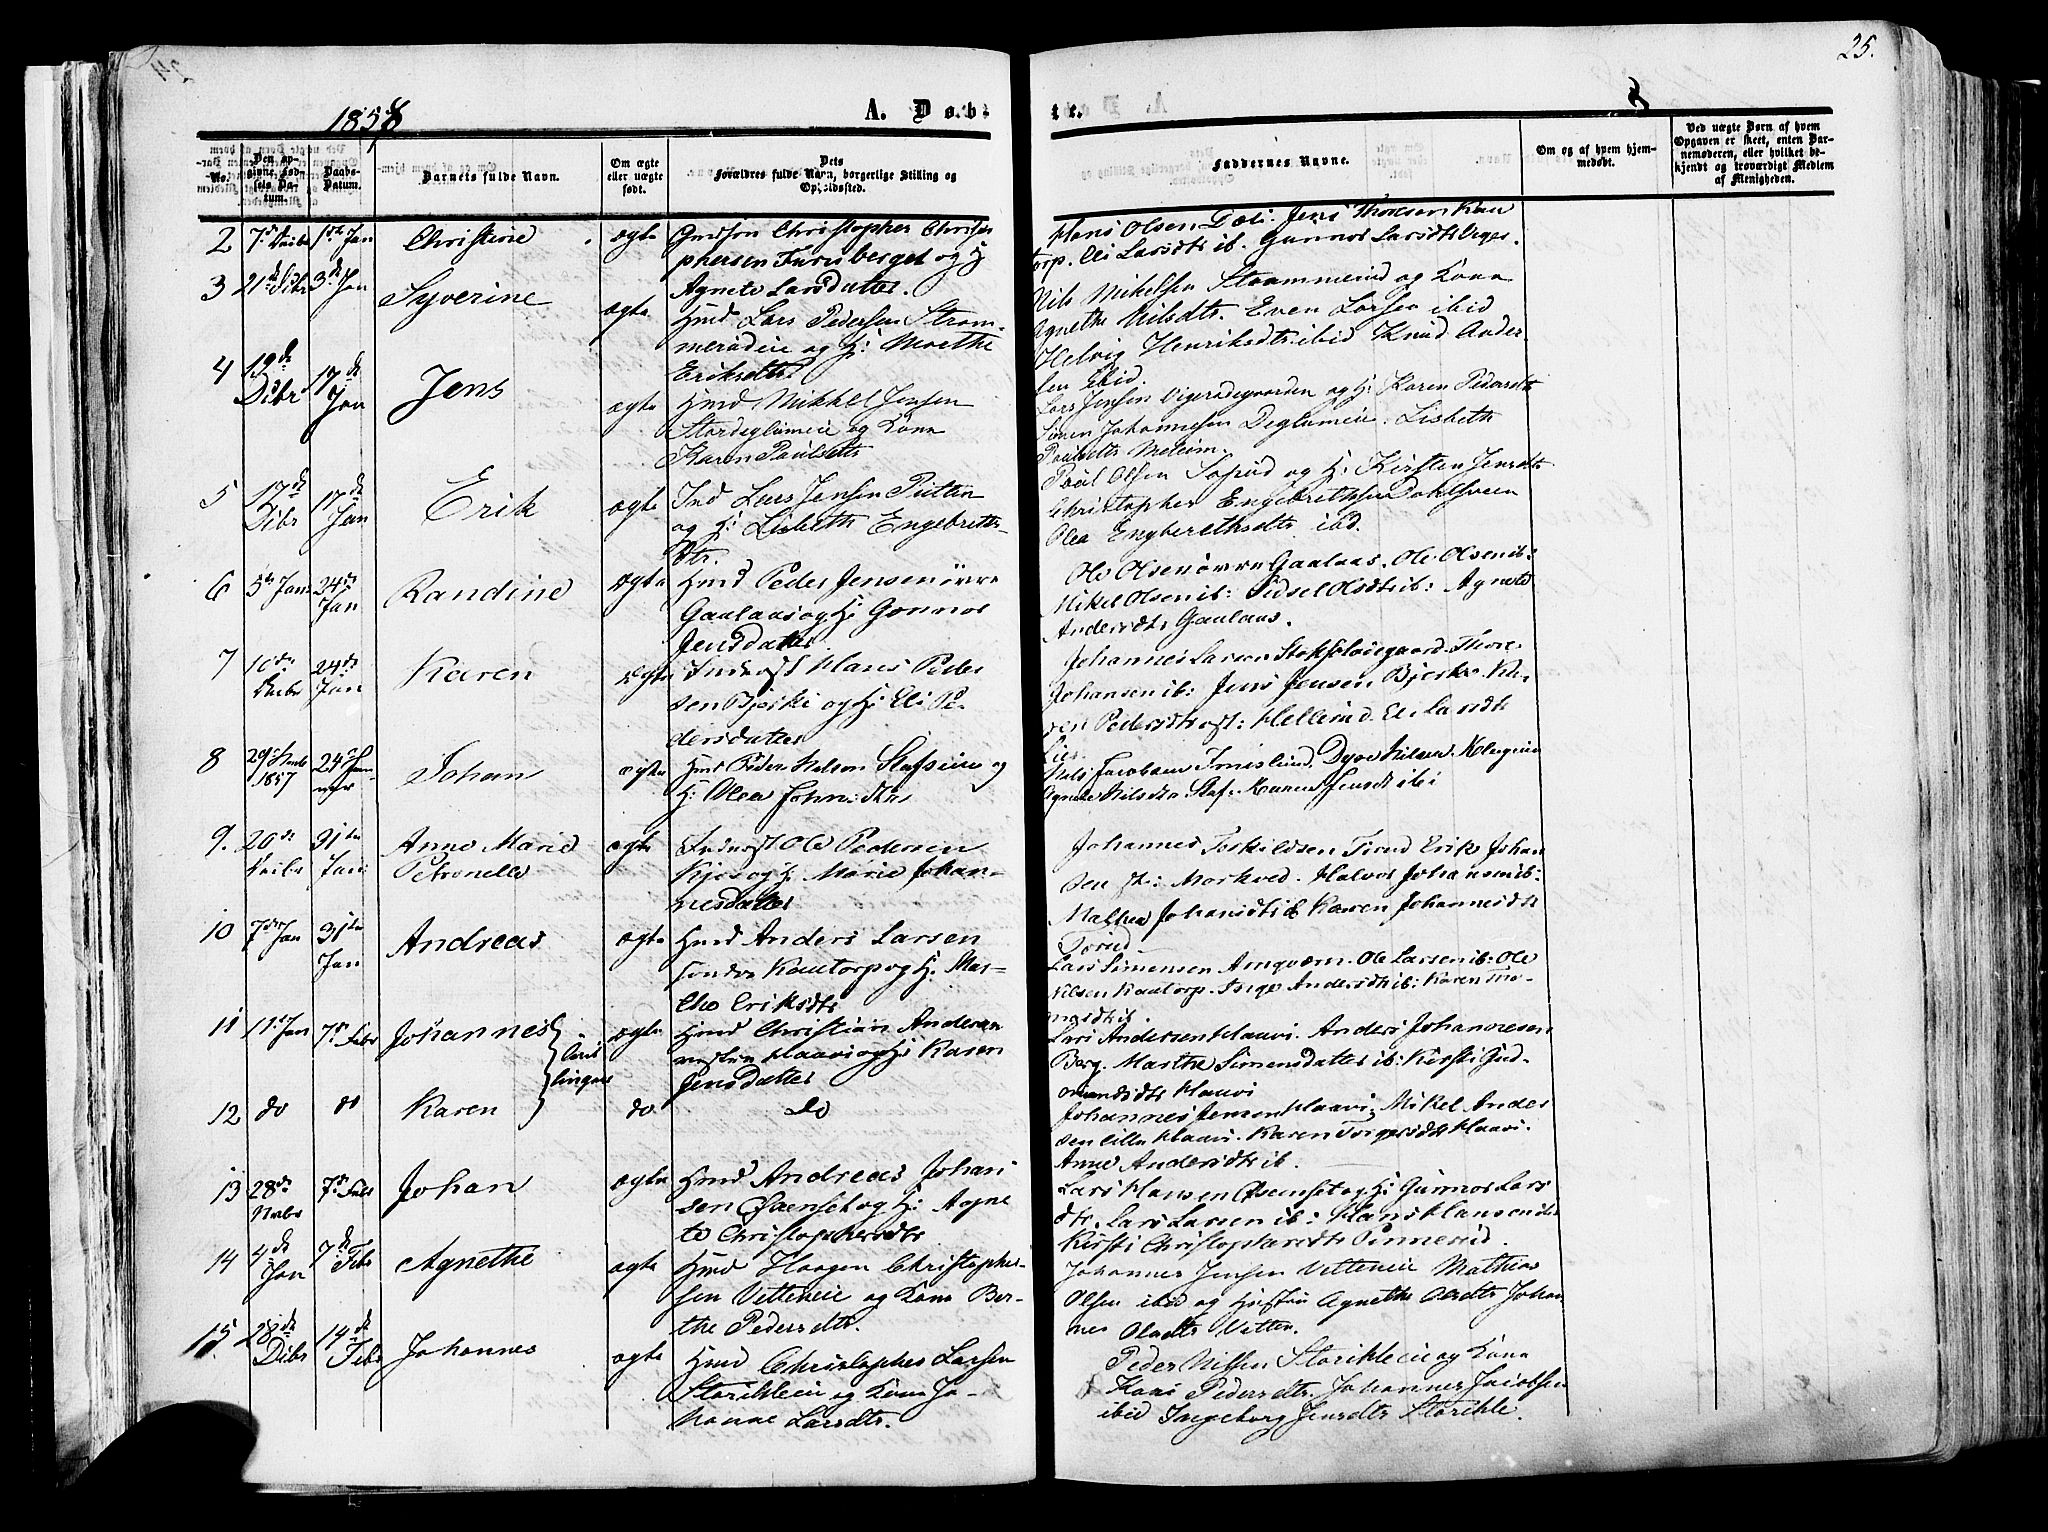 25.
1858
A. Døbte.
8
No.
Den opgivne Fødsels Datum.
Daabs-Datum.
Barnets fulde Navn.
Om ægte eller uægte født.
Dets Forældres fulde Navn, borgerlige Stilling og Opholdssted.
Faddernes Navne.
Om og af hvem hjemmedøbt.
Ved uægte Børn af hvem Opgaven er skeet, enten Barnemoderen, eller hvilket bekjendt og troværdigt Medlem af Menigheden.
2 7de 1ste Jan Christine ægte Christopher Christo
phersen Furuberget og H:
Agnete Larsdatter.
Hans Olsen Dæli. Jens Thoresen Kau
torp. Eli Larsdtr ib. Gunnor Larsdtr
3 21de Dibr 3de Jan Syverine ægte Hmd Lars Pedersen Strom-
merudeie og H: Marthe
Eriksdtr
Nils Mikelsen Strammerud og Kona
Agnethe Nilsdtr. Even Larsen ibid
Helvig Henriksdtr ibid Knud Ander
sen ibid.
4 19de Dibr 17de Jan Jens ægte Hmd Mikkel Jensen
Stordeglumeie og Kona
Karen Paulsdtr
Lars Jensen og H: Karen Pedersdtr
Simen Johannesen Deglumeie. Lisbeth
Paulsdtr
5 17de Dibr 17de Jan Erik ægte Ind Lars Jensen Putten
og H: Lisbeth Engebrets-
dtr.
Paul Olsen og H: Kirsten Jensdtr
Christopher Engebrethsen Dahlsveen
Olea Engberethsdtr ibd.
6 5te Jan 24de Jan Randine ægte Hmd Peder Jensen övre
Gaalaas og H: Gunnor
Jensdatter
Ole Olsen övre Gaalaas. Ole Olsen ib:
Mikel Olsen ib: Sidsel Olsdtr ib: Agnete
Andersdtr Gaalaas.
7 10de 24de Jan Karen ægte Inderst Hans Peder
sen Bjerke og H: Eli Pe-
dersdatter
Johannes Larsen Thore
Johansen ib: Jens Jensen Bjerke. Ka-
ren Pedersdtr Hellerud. Eli Larsdtr
8 29de 1857 24de Januar Johan ægte Hmd Peder Nelson Stafseie og
H: Olea Johnsdtr
Nels Jacobsen Dyre Nilsen
Agnete Nilsdtr Staf. Karen Jensdtr ib:
9. 20de 31te Jan: Anne Marie
Petronelle ægte Inderst Ole Pedersen
Kjos og H: Marie Johan-
nesdatter
Johannes Torkildsen Torud Erik Johan
sen Morkved. Halvor Johansen ib:
Mathea Johansdtr ib Karen Johannesdtr
Torud
10 7de Jan 31te Jan Andreas ægte Hmd Anders Larsen
söndre Kautorp og H: Mar-
the Eriksdtr
Lars Simensen Amqværn. Ole Larsen ib: Ole
Nilsen Kautorp. Inge Andersdtr ib: Karen Tho-
masdtr ib.
11 11te Jan 7de Febr Johannes Tvillinger ægte Hmd Christian Andersen
vestre Haavi og H: Karen
Jensdatter
Lars Andersen Haavi. Anders Johannesen
Berg. Marthe Simensdatter ib: Kirsti Gud-
mundsdtr Haavi
12 do do Karen do. do
Johannes Jensen Haavi. Mikel Ander
sen lille Haavi. Karen Torgersdtr Haavi.
Anne Andersdtr ib.
13 28de Novbr 7de Febr Johan ægte Hmd Andreas Johan
sen og H: Agne
te Christophersdtr
Lars Hansen og H: Gunnor Lars
dtr. Lars Larsen ib: Hans Hansen ib:
Kirsti Christophersdtr Tinnerud.
14 4de Jan 7de Febr Agnethe ægte Hmd Haagen Christopher-
sen Vetteneie og Kona Ber-
the Pedersdtr.
Johannes Jensen Vetteneie Mathias
Olsen ibid og Hustru Agnethe Olsdtr Johan
nes Olsdtr Vetten.
15. 28de Dibr 14de Febr Johannes ægte Hmd Christopher Larsen
Storihleeie og Kona Jo-
hanne Larsdtr.
Peder Nilsen Storihleeie og Kona
Kari Pedersdtr. Johannes Jacobsen
ibid Ingeborg Jensdtr Storihle.